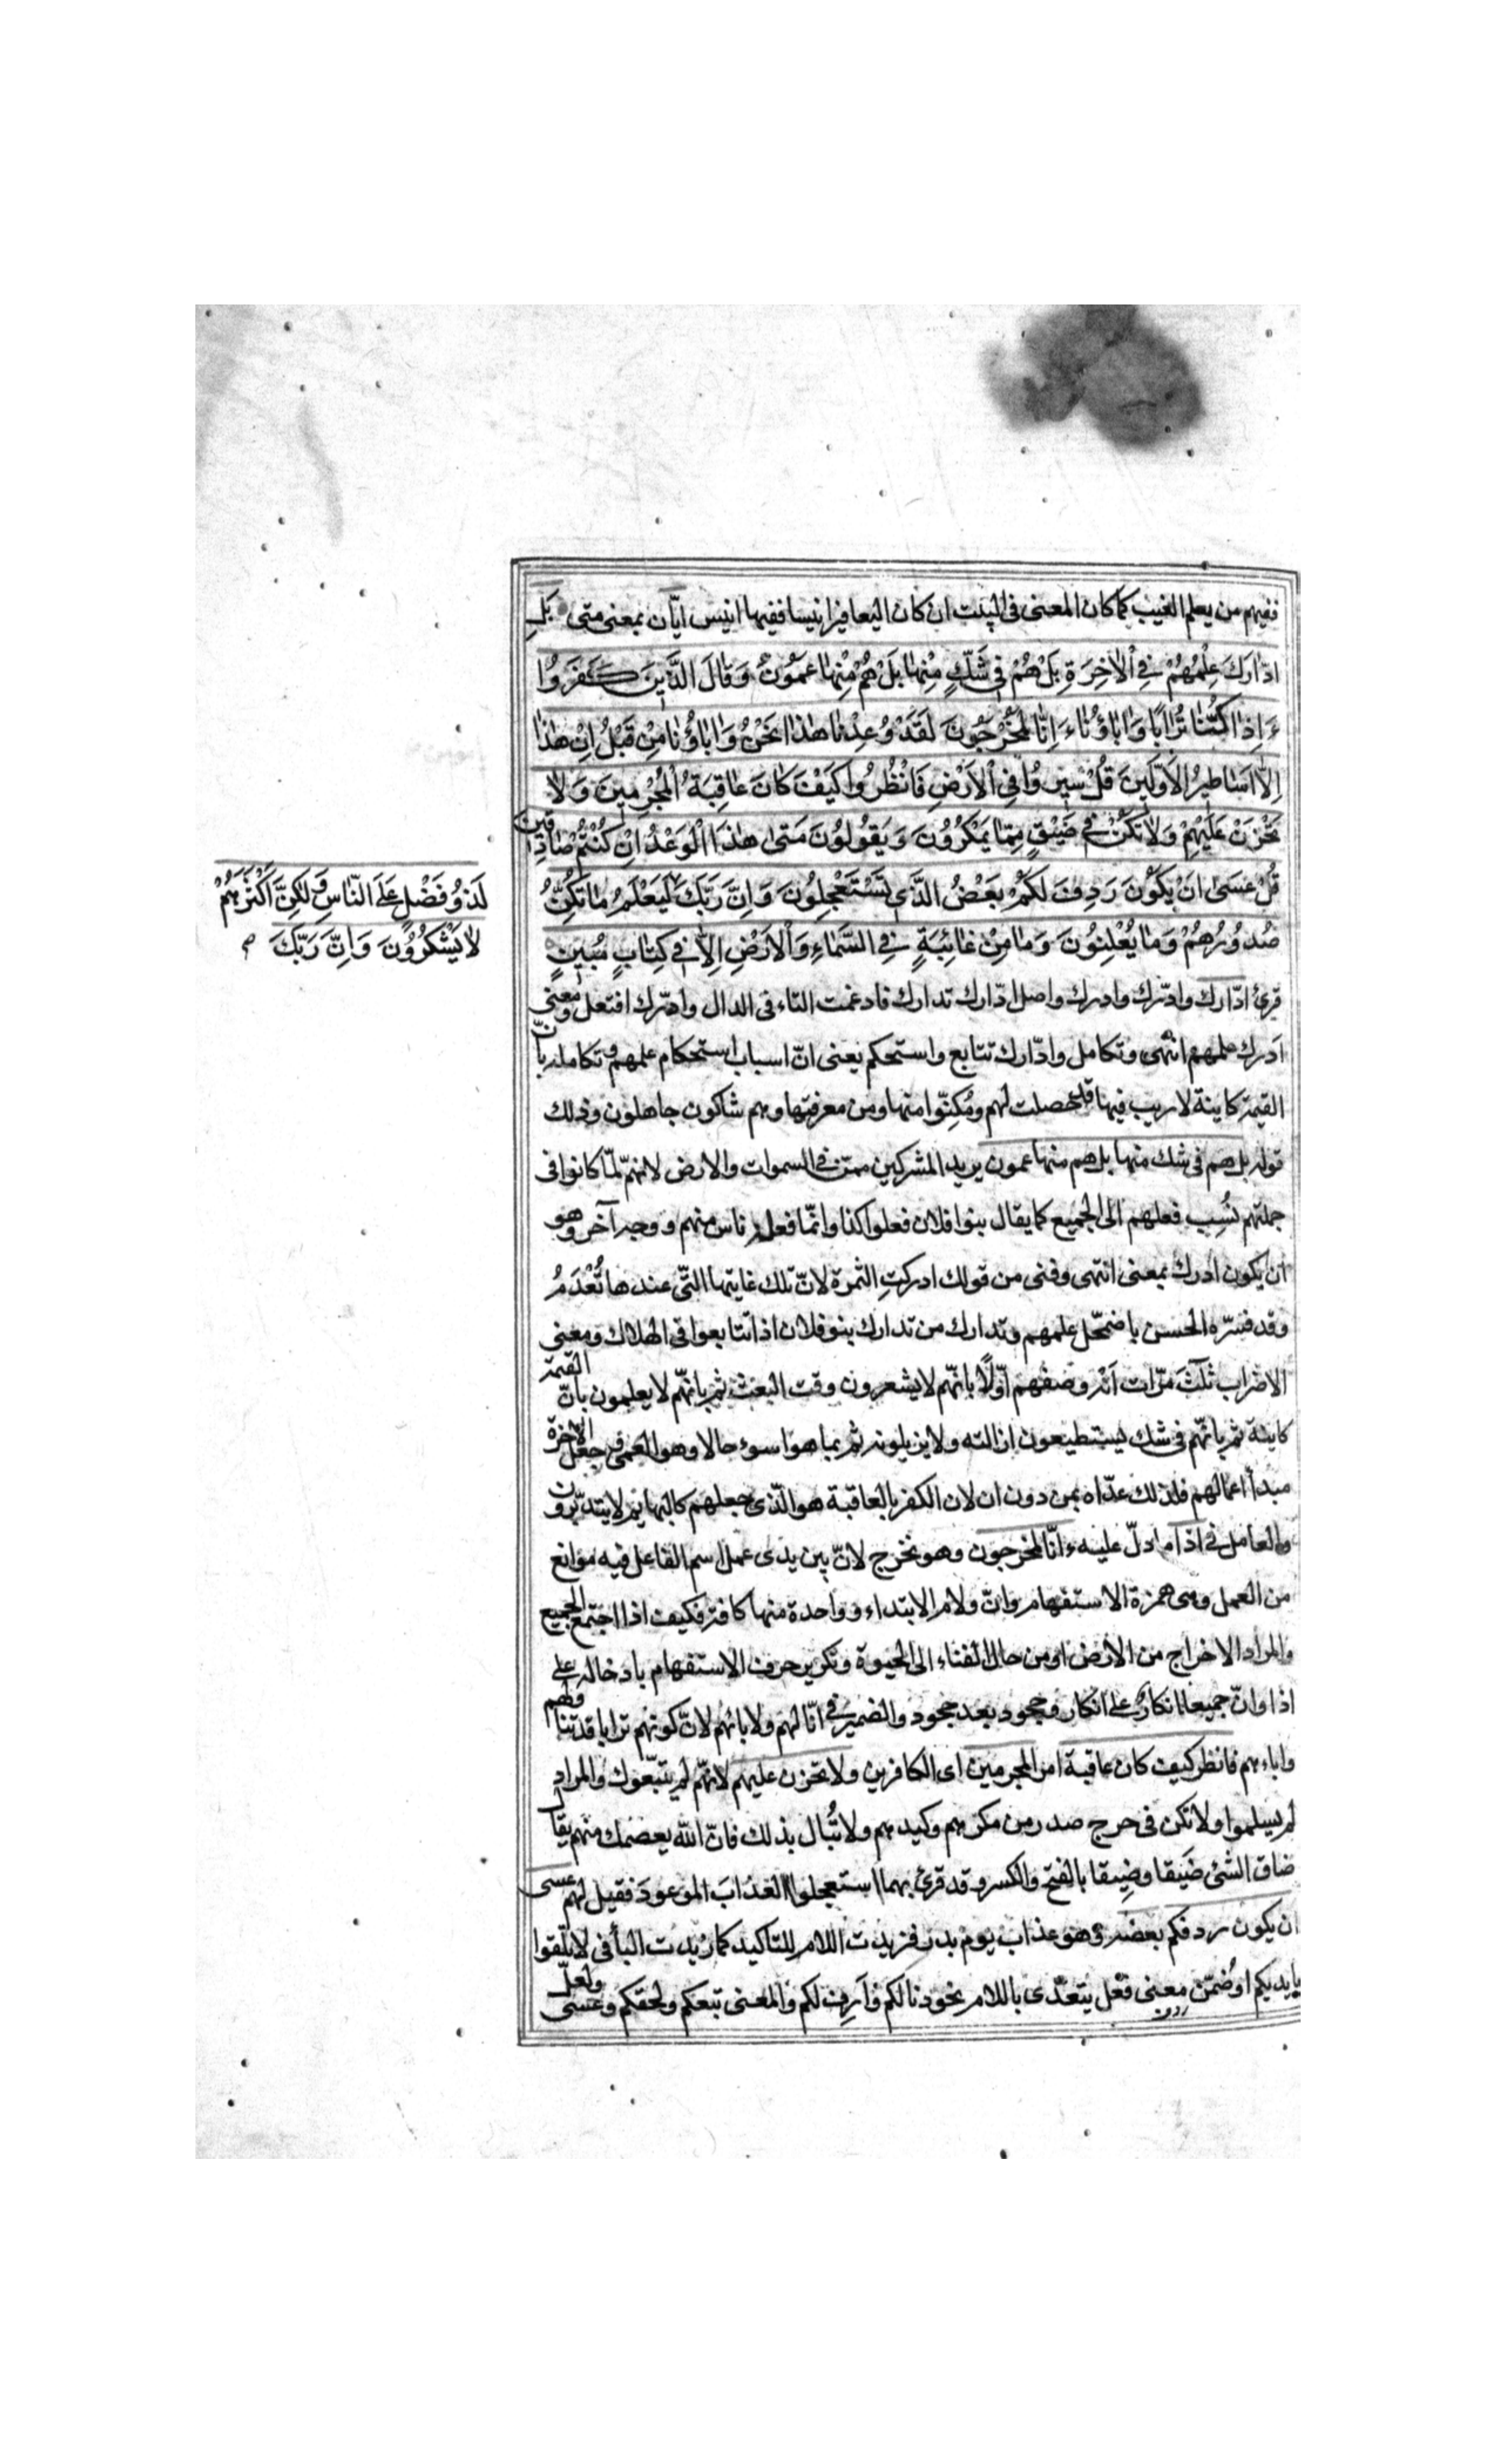 ففيهم من يعلم الغيب كما كان المعنى فى البيت ان كان اليعافير انيسا ففيها انيس ايّان بمعنى متى بَلِ
ادّارَكَ عِلْمُهُمْ فِي الْاٰخِرَةِ بَلْ هُمْ فِي شَكٍّ مِنْهٰا بَلْ هُمْ مِنْهٰا عَمُوْنَ وَقٰالَ الَّذِينَ كَفَرُوا
ءَاِذٰا كُنّٰا تُرٰابًا وَاٰبٰاؤُنٰاءَ اِنّٰا لَمُخْرَجُونَ لَقَدْ وُعِدْنٰا هٰذٰا نَحْنُ وَاٰبٰاؤُنٰا مِنْ قَبْلُ اِنْ هٰذٰا
اِلّٰا اَسٰاطِيرُ الْاَوَّلِينَ قُلْ سِيرُوا فِي الْاَرْضِ فَانْظُرُوا كَيْفَ كٰانَ عٰاقِبَةُ الْمُجْرِمِينَ وَلٰا
تَحْزَنْ عَلَيْهِمْ وَلٰا تَكُنْ فِي ضَيْقٍ مِمّٰا يَمْكُرُونَ وَيَقُولُونَ مَتٰى هٰذَا الْوَعْدُ اِنْ كُنْتُمْ صٰادِقِينَ
قُلْ عَسٰى اَنْ يَكُونَ رَدِفَ لَكُمْ بَعْضُ الَّذِي تَسْتَعْجِلُونَ وَاِنَّ رَبَّكَ لَيَعْلَمُ مٰا تُكِنُّ
صُدُورُهُمْ وَمٰا يُعْلِنُونَ وَمٰا مِنْ غٰائِبَةٍ فِي السَّمٰاءِ وَالْاَرْضِ اِلّٰا فِي كِتٰابٍ مُبِينٍ
قرئ ادّارك وادّرك وادرك واصل ادّارك تدارك فادغمت التاء فى الدال وادّرك افتعل ومعنى
ادرك علمهم انتهى وتكامل وادّارك تتابع واستحكم يعنى انّ اسباب استحكام علمهم وتكامله بانّ
القيمة كاينة لا ريب فيها قد حصلت لهم ومُكِنّوا منها ومن معرفتها وهم شاكون جاهلون وذلك
قوله بل هم فى شك منها بل هم منها عمون يريد المشركين ممّن فى السموات والارض لانهم لمّا كانوا فى
جملتهم نُسِب فعلهم الى الجميع كما يقال بنوا فلان فعلوا كذا وانّما فعله ناس منهم ووجه آخر وهو
ان يكون ادرك بمعنى انتهى وفنى من قولك ادركتِ الثمرة لانّ تلك غايتها الّتى عندها تُعْدَمُ
وقد فسّره الحسن باضمحّل علمهم وتدارك من تدارك بنو فلان اذا تتابعوا فى الهلاك ومعنى
الاضراب ثلٰث مرّات انّه وصفهم اوّلًا بانّهم لا يشعرون وقت البعث ثم بانّهم لا يعلمون بانّ القيمة
كاينة ثم بانّهم فى شك يستطيعون ازالته ولا يزيلونه ثم بما هو اسوء حالا وهو العمى وجعل الآخرة
مبدأ اعمالهم فلذلك عدّاه بمن دون ان لان الكفر بالعاقبة هو الّذى جعلهم كالبهايم لا يتدبّرون
والعامل فى اذا ما دلّ عليه ءانّا لمخرجون وهو نخرج لانّ بين يدى عمل اسم الفاعل فيه موانع
من العمل وهى همزة الاستفهام وانّ ولام الابتداء وواحدة منها كافية فكيف اذا اجتمع الجميع
والمراد الاخراج من الارض او من حال الفناء الى الحيوة وتكرير حرف الاستفهام بادخاله على
اذا وانّ جميعا انكارٌ على انكار وجحود بعد جحود والضمير فى انّا لهم ولابائهم لانّ كونهم ترابا قد تناولهم
واباءهم فانظر كيف كان عاقبة امر المجرمين اى الكافرين ولا تحزن عليهم لانّهم لم يتبّعوك والمراد
لم يسلموا ولا تكن فى حرج صدر من مكرهم وكيدهم ولا تُبال بذلك فانّ اللّه يعصمك منهم يقال
ضاق الشئ ضَيقا وضِيقا بالفتح والكسر وقد قرئ بهما استعجلوا العذابَ الموعودَ فقيل لهم عسى
ان يكون ردفكم بعضه وهو عذاب يوم بدر فزيدت اللام للتاكيد كما زيدت البأ فى لا تلقوا
بايديكم او ضُمّن معنى فعْل يتعدّى باللام نحو دنا لكم وآزِف لكم والمعنى تبعكم ولحقكم وعسى ولعلّ
لَذُو فَضْلٍ عَلَى النّٰاسِ وَلٰكِنَّ اَكْثَرَهُمْ
لٰا يَشْكُرُونَ وَاِنَّ رَبَّكَ